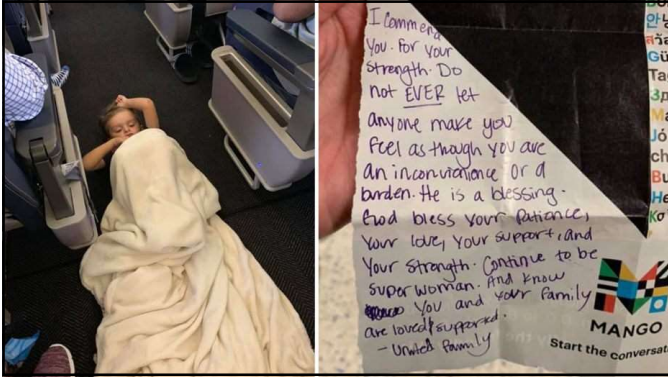 I commend
You. For Your
Strength. Do
not EVER let
anyone make you
Feel as though you are
an inconvenience or a
burden. He is a blessing.
God bless your Patience,
Your love, Your support, and
Your strength. Continue to be
super woman. And know
You and your Family
are loved & supported.
- United Family
MANGO
Start the conversat
Gü
Ta
Jó
ch
Bu
He
Ko